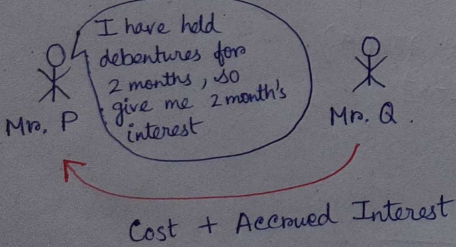 I have held
debentures for
2 months, so
give me 2 month's
interest
Mr. P
Mr. Q.
Cost + Accrued Interest